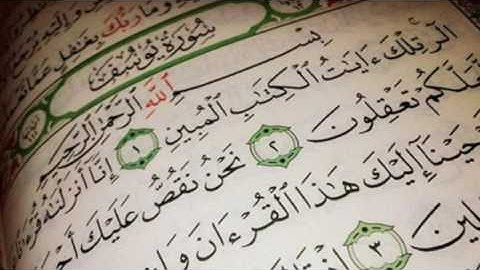 وما ربك بغفل عما
سورة يوسف
بسم الله الرحمن الرحيم
الر تلك ءايت الكتب المبين ١ إنا أنزلنه قر
لعلكم تعقلون ٢ نحن نقص عليك أح
حينا إليك هذا القرءان وإن
لين ٣